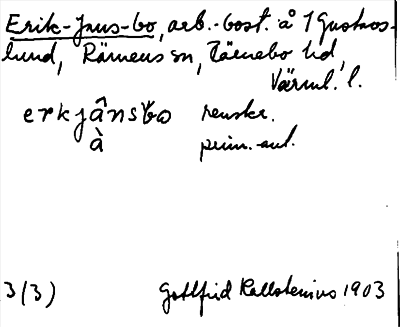 Erik-Jans-bo, arb.-bost. å 1 Gustavs-
lund, Rämens sn, Färnebo hd,
Värml. l.
erkjânsbω renskr.
à prim.-aut.
3(3) Gottfrid Kallstenius 1903